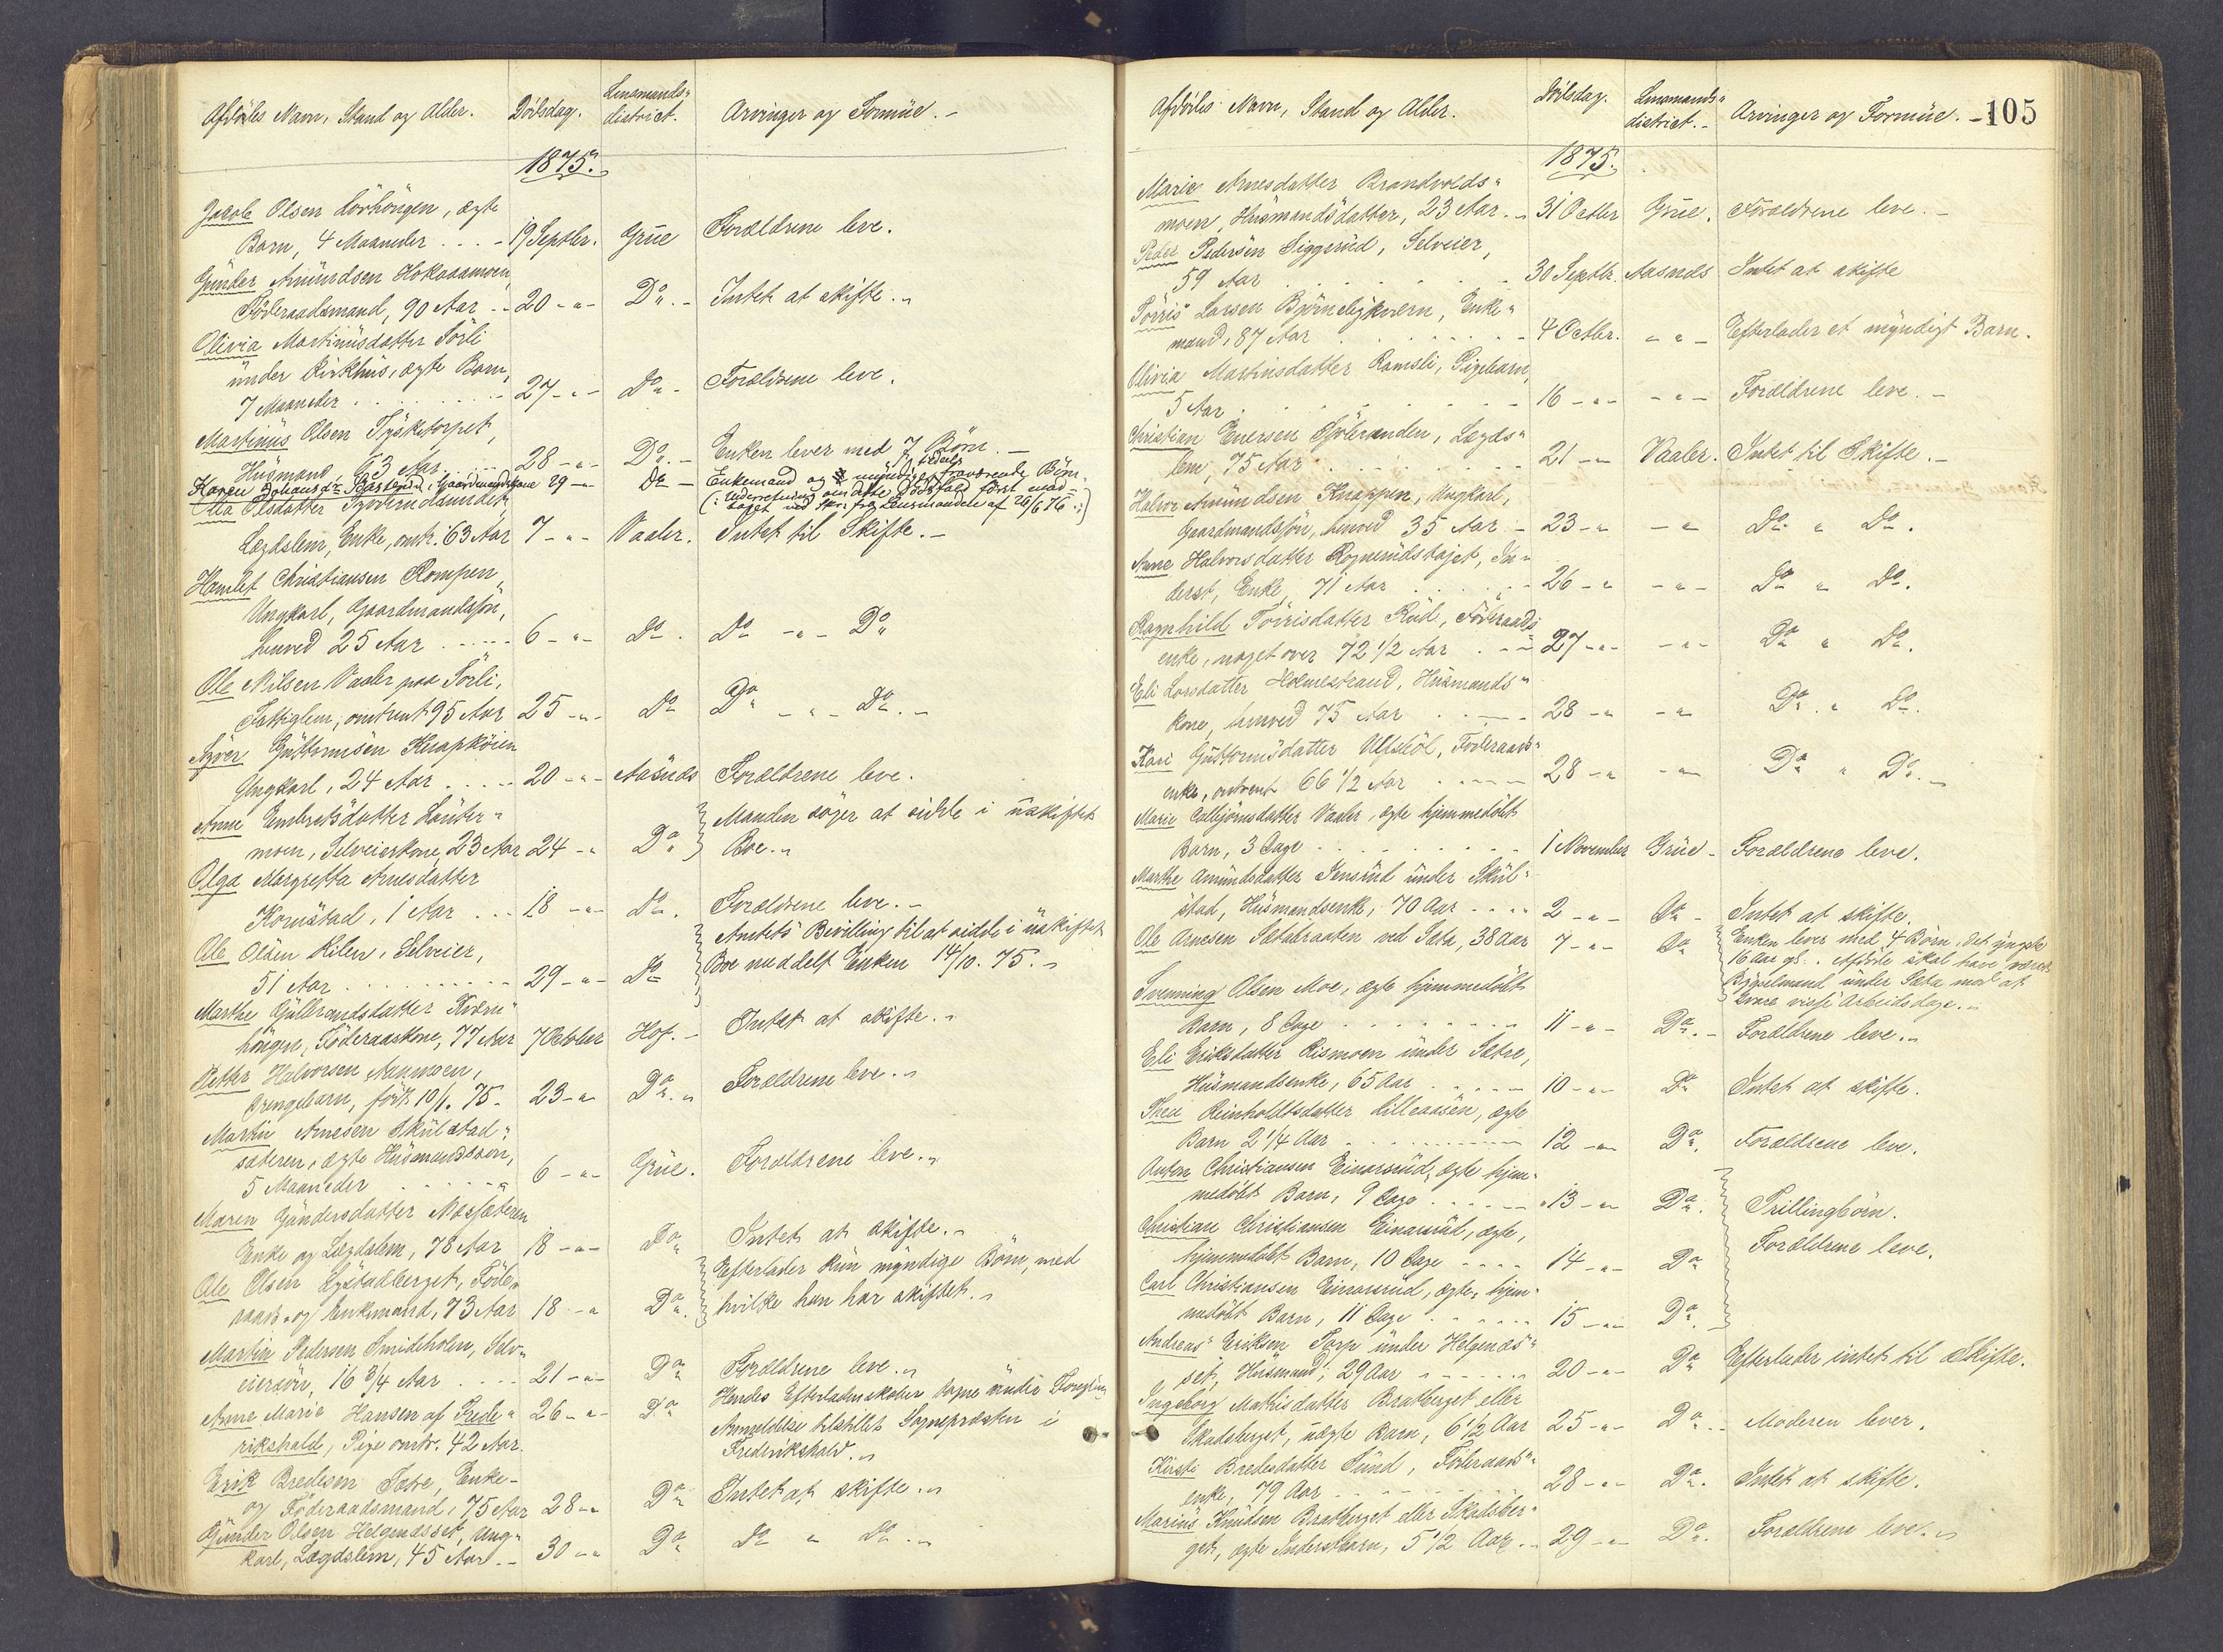 Afdödes Navn, Stand og Alder. Dödsdag. Lensmands- district. Arvinger og Formue.
1875.
Jacob Olsen Lövhöugen, ægte
Barn, 4 Maaneder 19 Septbr. Grue Forældrene leve.
Gunder Amundsen Hokaasmoen,
Föderaadsmand, 90 Aar 20 -"- Do. Intet at skifte.
Olivia Martinusdatter Törli
under Kirkhus, ægte Barn,
7 Maaneder 27 -"- Do Forældrene leve.
Martinus Olsen Tysketorpet,
Husmand, 63 Aar 28 -"- Do. Enken lever med 7 Börn.
Karen Johansdr. Gaardmandskone 29 -"- Do Enkemand og myndige fraværende Börn.
(: Underretning om dette Dödsfald först mod-
taget ved Skr. fra Lensmanden af 26/6 76 :)
Olia Olsdatter
Lægdslem, Enke, omtr. 63 Aar 7 -"- Vaaler. Intet til Skifte.
Hamlet Christiansen Rompen,
Ungkarl, Gaardmandssön,
henved 25 Aar 6 -"- Do. Do -"- Do
Ole Nilsen Vaaler paa Törli,
Fattiglem, omtrent 95 Aar 25 -"- Do Do -"- Do.
Syver Guttormsen Knapköien
Ungkarl, 24 Aar 20 -"- Aasnes Forældrene leve.
Anne Embretsdatter Lauter-
moen, Selveierkone, 23 Aar 24 -"- Do Manden söger at sidde i uskiftet
Boe.
Olga Margretta Arnesdatter
Kornstad, 1 Aar 18 -"- Do. Forældrene leve.
Ole Olsen Kilen, Selveier,
51 Aar 29 -"- Do Amtets Bevilling til at sidde i uskiftet
Boe meddelt Enken 14/10. 75.
Marthe Gulbrandsdatter Kværn-
höugen, Föderaadskone, 77 Aar 7 October Hof. Intet at skifte.
Petter Halvorsen Aamoen,
Drengebarn, födt 10/1. 75. 23 -"- Do. Forældrene leve.
Martin Arnesen Skulstad-
sæteren, ægte Husmandssön,
5 Maaneder 6 -"- Grue. Forældrene leve.
Maren Gundersdatter Næssæteren
Enke og Lægdslem, 78 Aar 18 -"- Do Intet at skifte.
Ole Olsen Lystadberget, Föde-
raads- og Enkemand, 73 Aar 18 -"- Do. Efterlader kun myndige Börn, med
hvilke han har skiftet.
Martin Pedersen Smideholen, Selv-
eiersön, 16 3/4 Aar 21 -"- Do Forældrene leve.
Anne Marie Hansen af Frede-
rikshald, Pige omtr. 42 Aar. 26 -"- Do Hendes Efterladenskaber tagne under
Anmeldelse tilstillet Sognepræsten i
Frederikshald.
Erik Bredesen Sætre, Enke-
og Föderaadsmand, 75 Aar 28 -"- Do Intet at skifte.
Gunder Olsen Helgendsset, Ung-
karl, Lægdslem, 45 Aar 30 -"- Do Do " Do.
Afdödes Navn, Stand og Alder. Dödsdag. Lensmands- district. Arvinger og Formue. 105
1875.
Marie Arnesdatter Brandvolds-
moen, Husmandsdatter, 23 Aar. 31 Octbr Grue. Forældrene leve.
Peder Pedersen Siggerud, Selveier,
59 Aar 30 Septbr. Aasnes Intet at skifte
Törris Larsen Björnelykværn, Enke-
mand, 87 Aar 4 Octbr. -"- Efterlader et myndigt Barn.
Olivia Martinsdatter Ramsli, Pigebarn,
5 Aar 16 -"- -"- Forældrene leve.
Christian Enersen Lægds-
lem, 75 Aar 21 -"- Vaaler. Intet til Skifte.
Halvor Amundsen Knappen, Ungkarl,
Gaardmandssön, henved 35 Aar 23 -"- -"- Do " Do.
Anne Halvorsdatter In-
derst, Enke, 71 Aar 26 -"- -"- Do " Do.
Ragnhild Törrisdatter Rud, Föderaads-
enke, noget over 72 1/2 Aar 27 -"- -"- Do " Do.
Eli Larsdatter Holmestrand, Husmands-
kone, henved 75 Aar 28 -"- -"- Do. " Do.
Kari Guttormsdatter Ulfsböl, Föderaads-
enke, omtrent 66 1/2 Aar 28 -"- -"- Do " Do.
Marie Callijörnsdatter Vaaler, ægte hjemmedöbt
Barn, 3 Dage 1 November Grue Forældrene leve.
Marthe Amundsdatter Jensrud under Skul-
stad, Husmandsenke, 70 Aar 2 -"- Do Intet at skifte.
Ole Arnesen Sætabraaten ved Sæta, 38 Aar 7 -"- Do Enken lever med 4 Börn, det yngste
16 Aar gl. Afdöde skal have været
Bygselmand under Sæta mod at
svare visse Arbeidsdage.
Svenning Olsen Moe, ægte hjemmedöbt
Barn, 8 Dage 11 -"- Do. Forældrene leve.
Eli Eriksdatter Rismoen under Sætre,
Husmandsenke, 65 Aar 10 -"- Do Intet at skifte.
Thea Reinholdtsdatter Lilleaasen, ægte
Barn 2 1/4 Aar 12 -"- Do. Forældrene leve.
Anton Christiansen Einarsrud, ægte hjem-
medöbt Barn, 9 Dage 13 -"- Do. Trillingbörn.
Christian Christiansen Einarsrud, ægte,
hjemmedöbt Barn, 10 Dage 14 -"- Do Forældrene leve.
Carl Christiansen Einarsrud, ægte, hjem-
medöbt Barn, 11 Dage 15 -"- Do.
Andreas Eriksen Torp under Helgends-
set, Husmand, 29 Aar 20 -"- Do Efterlader intet til Skifte.
Ingeborg Mathisdatter Bratberget eller
Skadsberget, uægte Barn, 6 1/2 Aar 25 -"- Do. Moderen lever.
Kirsti Bredesdatter Sund, Föderaads-
enke, 79 Aar 28 -"- Do. Intet at skifte.
Marius Knudsen Bratberget eller Skadsber-
get, ægte Inderstbarn, 5 1/2 Aar 29 -"- Do. Forældrene leve.